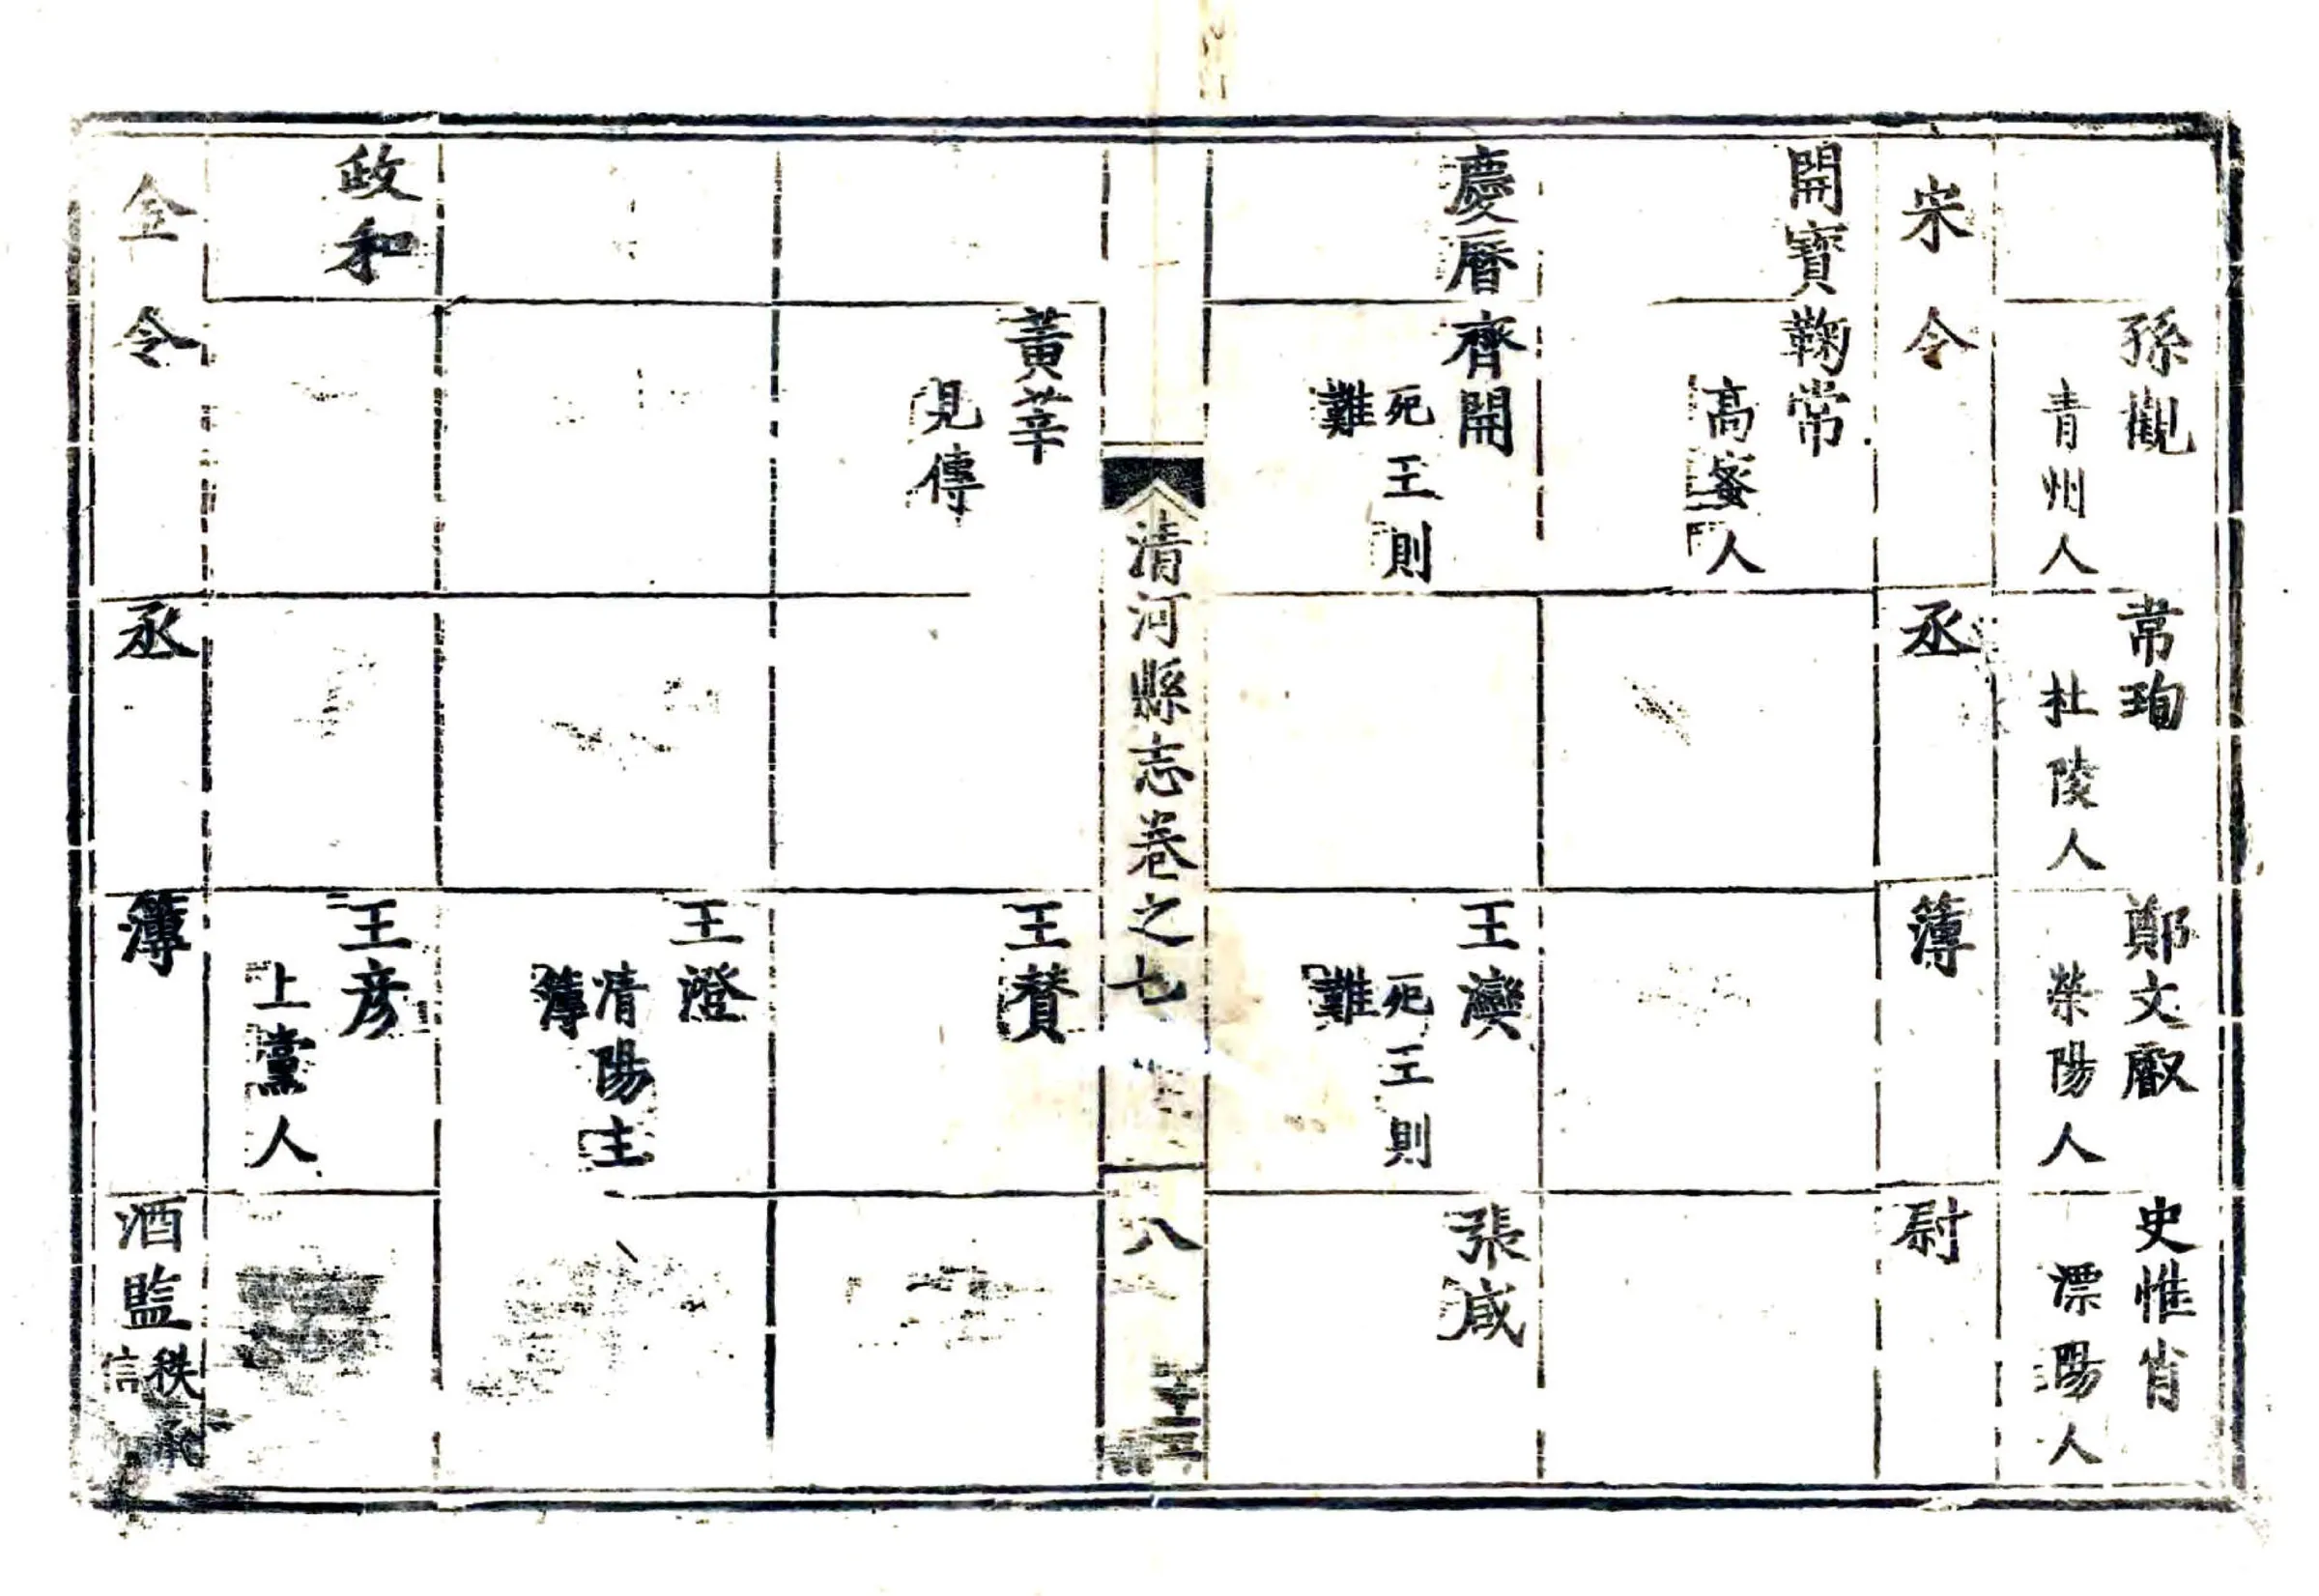 孫觀
青州人
常珣
杜陵人
鄭文叡
滎陽人
史惟肖
漂陽人
宋
令
丞
簿
尉
開寶
鞠常
高峚人
慶曆
齊開
死王則
難
王灣
死王則
難
張咸
清河縣志卷之七
八
黃莘
見傳
王贊
王澄
清陽主
簿
政和
王彥
上黨人
金
令
丞
簿
酒監
秩承
信